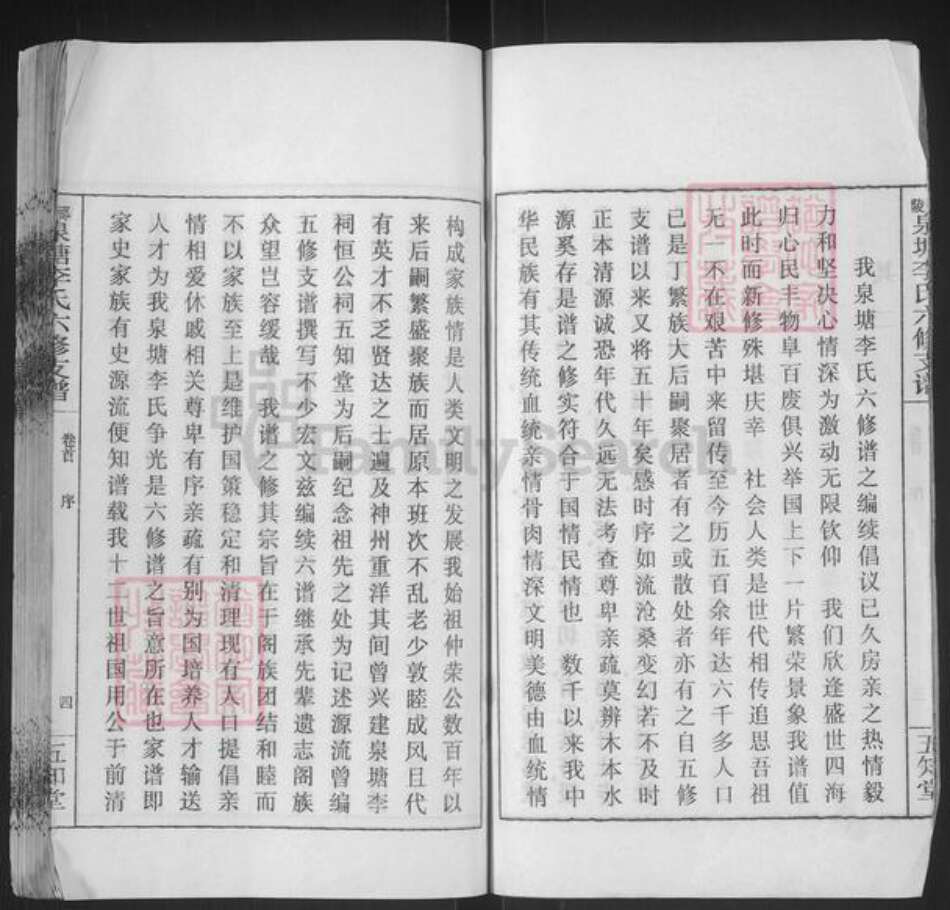 陵泉塘李氏六修支谱
五知堂
我泉塘李氏六修谱之编续倡议已久房亲之热情毅
力和坚决心情深为激动无限钦仰　我们欣逢盛世四海
归心民丰物阜百废俱兴举国上下一片繁荣景象我谱值
此时而新修殊堪庆幸　社会人类是世代相传追思吾祖
无一不在艰苦中来留传至今历五百余年达六千多人口
已是丁繁族大后嗣聚居者有之或散处者亦有之自五修
支谱以来又将五十年矣感时序如流沧桑变幻若不及时
正本清源诚恐年代久远无法考查尊卑亲疏莫辨木本水
源奚存是谱之修实符合于国情民情也　数千以来我中
华民族有其传统血统亲情骨肉情深文明美德由血统情
构成家族情是人类文明之发展我始祖仲荣公数百年以
来后嗣繁盛聚族而居原本班次不乱老少敦睦成风且代
有英才不乏贤达之士遍及神州重洋其间曾兴建泉塘李
祠恒公祠五知堂为后嗣纪念祖先之处为记述源流曾编
五修支谱撰写不少宏文兹编续六谱继承先辈遗志阁族
众望岂容缓哉　我谱之修其宗旨在于阁族团结和睦而
不以家族至上是维护国策稳定和清理现有人口提倡亲
情相爱休戚相关尊卑有序亲疏有别为国培养人才输送
人才为我泉塘李氏争光是六修谱之旨意所在也家谱即
家史家族有史源流便知谱载我十二世祖国用公于前清
泉塘李氏六修支谱
卷首　序
四
五知堂
FamilySearch